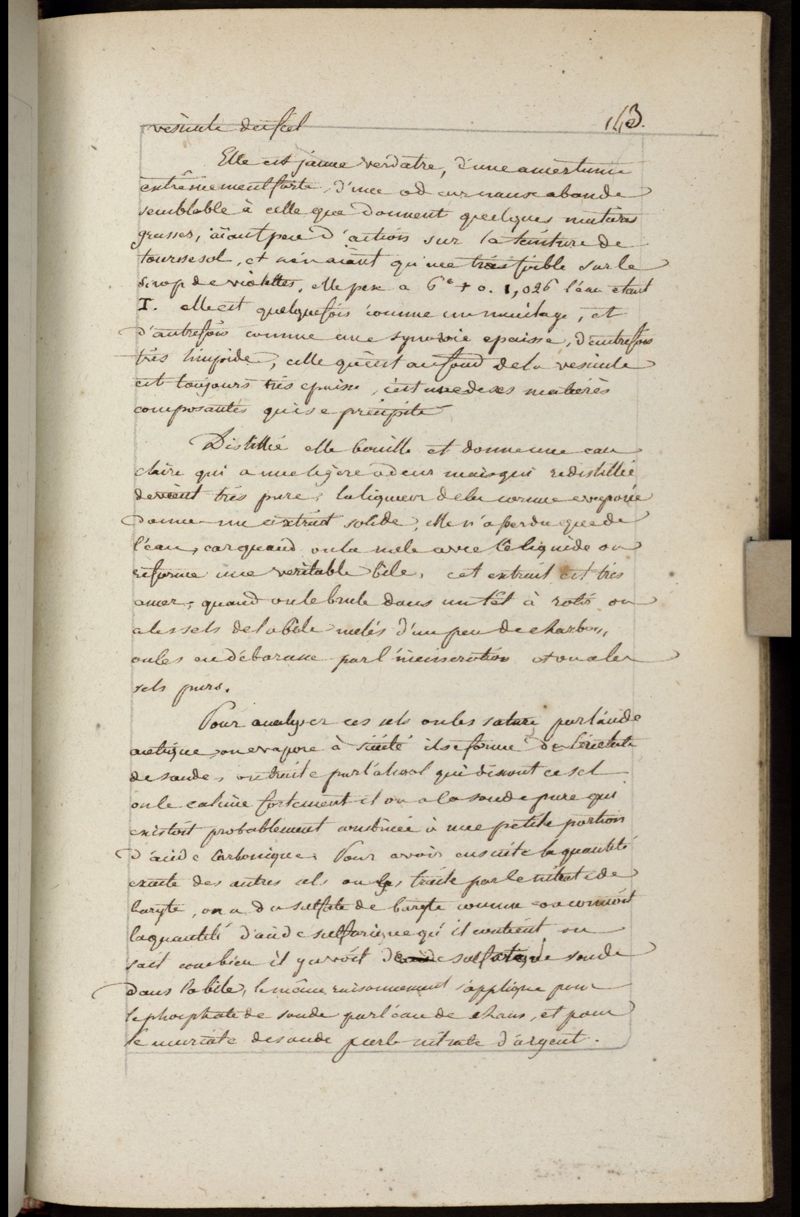 vesicule du fiel 143.
Elle est jaune verdatre, d'une amertume
extrêmement forte, d'une odeur nauseabonde
semblable à celle que donnent quelques matieres
grasses, aiant peu d'action sur la teinture de
tournesol, et n'en aiant qu'une très foible sur le
sirop de violettes, elle pese a 6° + 0. 1,026 l'eau etant
I. elle est quelquefois comme un mucilage, et
d'autrefois comme une synovie epaisse, d'autrefois
très limpide, celle qui est au fond de la vesicule
est toujours très epaisse, c'est une de ses matieres
composantes qui se precipite
Distillée elle bouille et donne une eau
claire qui a une legere odeur mais qui redistillée
devient très pure, la liqueur de la cornue evaporée
donne un extrait solide, elle n'a perdu que de
l'eau, car quand on la mele avec le liquide on
reforme une veritable bile, cet extrait est très
amer, quand on le brule dans un têt à rotir on
a les sels de la bile melés d'un peu de charbon,
on les en débarasse par l'incineration et on a les
sels purs.
Pour analyser ces sels on les sature par l'acide
acetique, on evapore à siccité il se forme de l'acetate
de soude, on traite par l'alcool qui dissout ce sel
on le calcine fortement et on a la soude pure qui
existoit probablement combinée à une petite portion
d'acide carbonique. Pour avoir ensuite la quantité
exacte des autres sels on les traite par le nitrate de
baryte, on a du sulfate de baryte comme on connoit
la quantité d'acide sulfurique qu'il contient on
sait combien il y avoit de sulfate de soude
dans la bile, le même raisonnement s'applique pour
le phosphate de soude par l'eau de chaux, et pour
le muriate de soude par le nitrate d'argent.